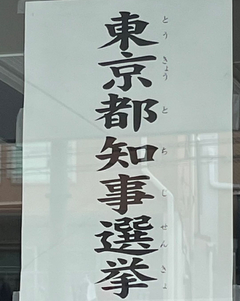 東京都知事選挙
とうきょうとちじせんきょ